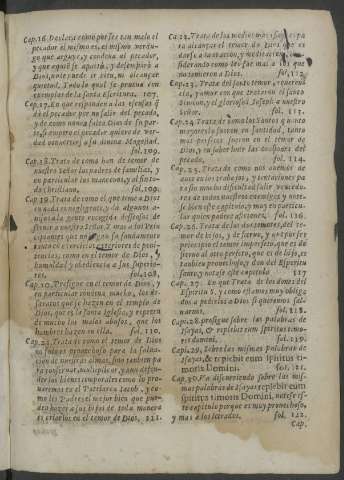 Cap. 16. Declara como porser tan malo el
pecador el mismo es, el mismo verdu-
go que arguye, y condena al pecador,
y que aquel se aparta, y desampara a
Dios, no te puede ir bien, ni alcançar
quietud, Todo lo qual se prueva con
exemplos de la santa Escritura. 107.
Cap. 17. En que responden a las escusas q̃
dà el pecador por no salir del pecado,
y de como nunca falta Dios de su par-
te, si empero el pecador quiere de ver-
dad convertirse a su divina Magestad.
fol. 109.
Cap. 18. Trata de como han de temer de
nuestro Señor los padres de familias, y
en particular los mancebos, y al fin to-
do Christiano. fol. 109.
Cap. 19. Trata de como el que teme a Dios
en nada es negligente, y da algunos a-
la gente recogida desseosos de
servir a nuestro Señor.
el temor de Dios,
humildad y obediencia a sus superio-
res. fol. 108.
Cap. 20. Prosigue en el temor de Dios, y
en particular condena mucho, los de-
sacatos que se hazen en el templo de
Dios, que es, la santa Iglesia, y reprehen
de mucho los malos abusos, que los
hombres hazen en ellas. fol. 110.
Cap. 21. Trata como el temor de Dios
no solo es provechoso para la salva-
cion de nuestras almas, sino tambien pa
ra conservar, multiplicar, y aun defen-
der los bienes temporales como lo pro-
metieron en el Patriarca Iacob, y co-
mo los Padres el mejor bien que pue-
den hazer a sus hijos de toda manera
es criarlos en el temor de Dios. 111.
Cap. 22. Trata de los medios mas pa
ra alcançar el temor de Dios que es
darse a la oracion, y meditacion, con-
siderando como los que mas a los que
no temieron a Dios. fol. 112.
Cap. 23. Trata del santo temor, reveren
cia, y amor con que trataron el santo
Simeon, y el glorioso S. Ioseph a nuestro
Señor. fol. 113.
Cap. 24. Trata de como los Santos, quanto
mayores lo fueron en santidad, tanto
mas perfetos fueron en el temor de
Dios, y en saber huir las ocasiones del
pecado. fol. 114.
Cap. 25. Trata de como nos avemos de
aver en los trabajos, y tentaciones pa
ra sin mucha dificultad salir vencedo-
res de todos nuestros enemigos y note-
se bien este capitulo, y muy en particu-
lar quien padece aflicciones. fol. 116.
Cap. 26. Trata de los dos temores, del te-
mor de hijo, y de siervo, y que por ser
principio el temor imperfeto, que es de
siervo al otro perfeto, que es de hijo, es
tambien provechoso y don del Espiritu
santo, y notase este capitulo 117
Cap. 27. En que Trata de los dones del
Espiritu S. y como estamos muy obliga
dos a pedirlos a Dios si queremos sal-
varnos. fol. 118.
Cap. 28. Prosigue sobre las palabras de
Isayas, & replebit eum spiritus timo-
ris domini. fol. 119.
Cap. 29. Sobre las mismas palabras de
Isayas, & replebit eum spiritus ti-
moris Domini. fol. 121.
Cap. 30. Va discurriendo sobre las mis-
mas palabras de Isayas replebit eum
spiritus timoris Domini, notese es-
te capitulo porque es muy provechoso,
y mas a los letrados. fol. 122.
Cap.